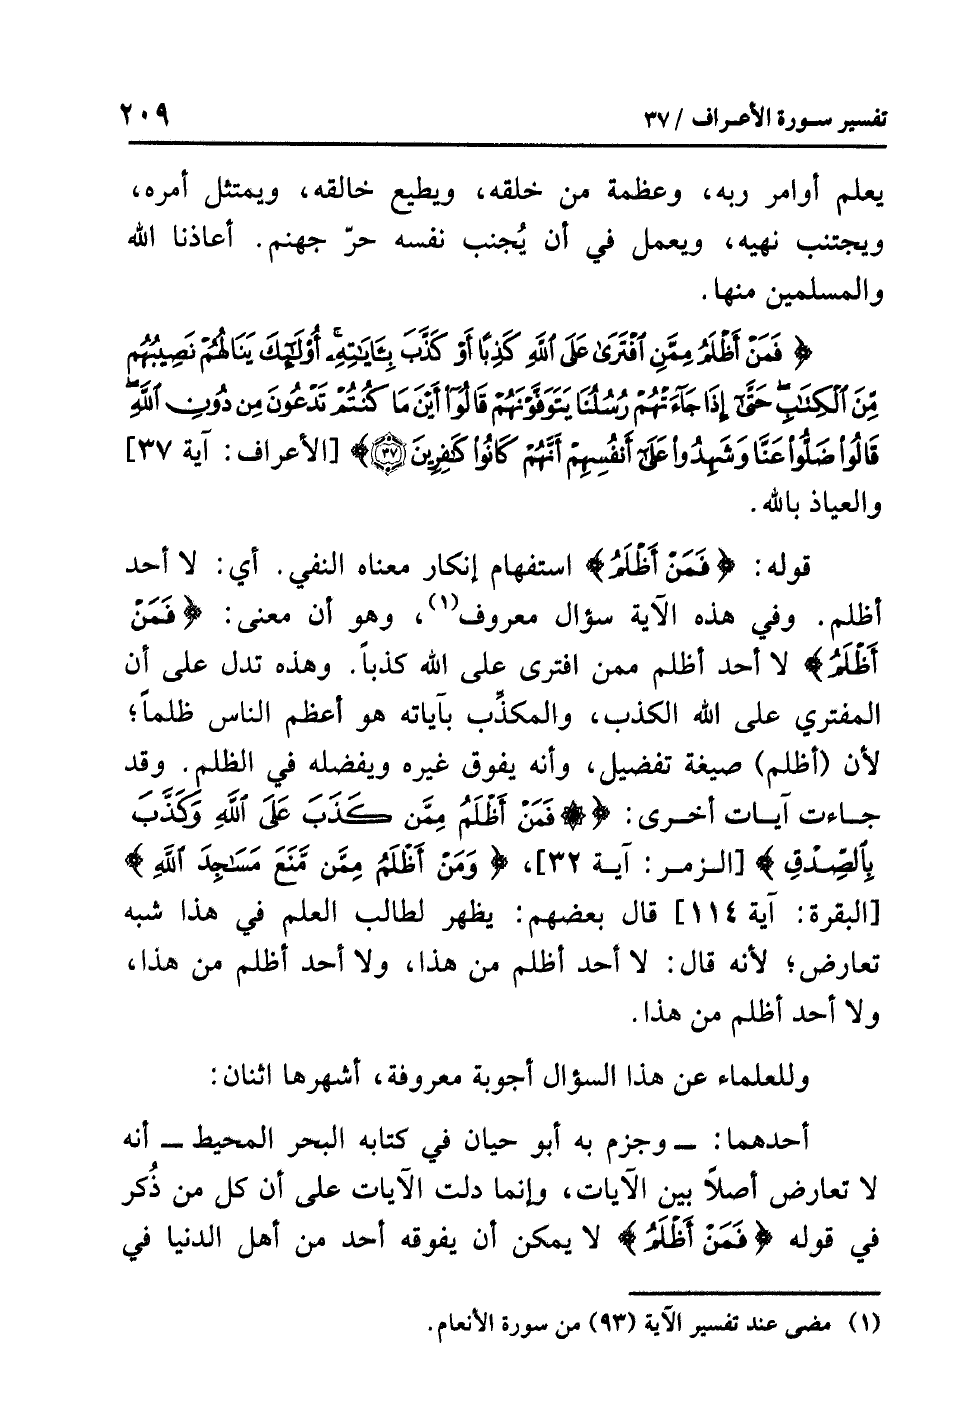 تفسير سورة الأعراف / ٣٧ ٢٠٩
يعلم أوامر ربه، وعظمة من خلقه، ويطيع خالقه، ويمتثل أمره،
ويجتنب نهيه، ويعمل في أن يُجنب نفسه حرّ جهنم. أعاذنا الله
والمسلمين منها.
﴿ فَمَنْ أَظْلَمُ مِمَّنِ ٱفْتَرَىٰ عَلَى ٱللَّهِ كَذِبًا أَوْ كَذَّبَ بِـَٔايَـٰتِهِۦٓ أُوْلَـٰٓئِكَ يَنَالُهُمْ نَصِيبُهُم
مِّنَ ٱلْكِتَـٰبِۖ حَتَّىٰٓ إِذَا جَآءَتْهُمْ رُسُلُنَا يَتَوَفَّوْنَهُمْ قَالُوٓاْ أَيْنَ مَا كُنتُمْ تَدْعُونَ مِن دُونِ ٱللَّهِۖ
قَالُواْ ضَلُّواْ عَنَّا وَشَهِدُواْ عَلَىٰٓ أَنفُسِهِمْ أَنَّهُمْ كَانُواْ كَـٰفِرِينَ ٣٧﴾ [الأعراف: آية ٣٧]
والعياذ بالله.
قوله: ﴿ فَمَنْ أَظْلَمُ﴾ استفهام إنكار معناه النفي. أي: لا أحد
أظلم. وفي هذه الآية سؤال معروف(١)، وهو أن معنى: ﴿ فَمَنْ
أَظْلَمُ﴾ لا أحد أظلم ممن افترى على الله كذباً. وهذه تدل على أن
المفتري على الله الكذب، والمكذِّب بآياته هو أعظم الناس ظلماً؛
لأن (أظلم) صيغة تفضيل، وأنه يفوق غيره ويفضله في الظلم. وقد
جاءت آيات أخرى: ﴿ ۞ فَمَنْ أَظْلَمُ مِمَّن كَذَبَ عَلَى ٱللَّهِ وَكَذَّبَ
بِٱلصِّدْقِ ﴾ [الزمر: آية ٣٢]، ﴿ وَمَنْ أَظْلَمُ مِمَّن مَّنَعَ مَسَـٰجِدَ ٱللَّهِ ﴾
[البقرة: آية ١١٤] قال بعضهم: يظهر لطالب العلم في هذا شبه
تعارض؛ لأنه قال: لا أحد أظلم من هذا، ولا أحد أظلم من هذا،
ولا أحد أظلم من هذا.
وللعلماء عن هذا السؤال أجوبة معروفة، أشهرها اثنان:
أحدهما: ــ وجزم به أبو حيان في كتابه البحر المحيط ــ أنه
لا تعارض أصلاً بين الآيات، وإنما دلت الآيات على أن كل من ذُكر
في قوله ﴿ فَمَنْ أَظْلَمُ﴾ لا يمكن أن يفوقه أحد من أهل الدنيا في
(١) مضى عند تفسير الآية (٩٣) من سورة الأنعام.